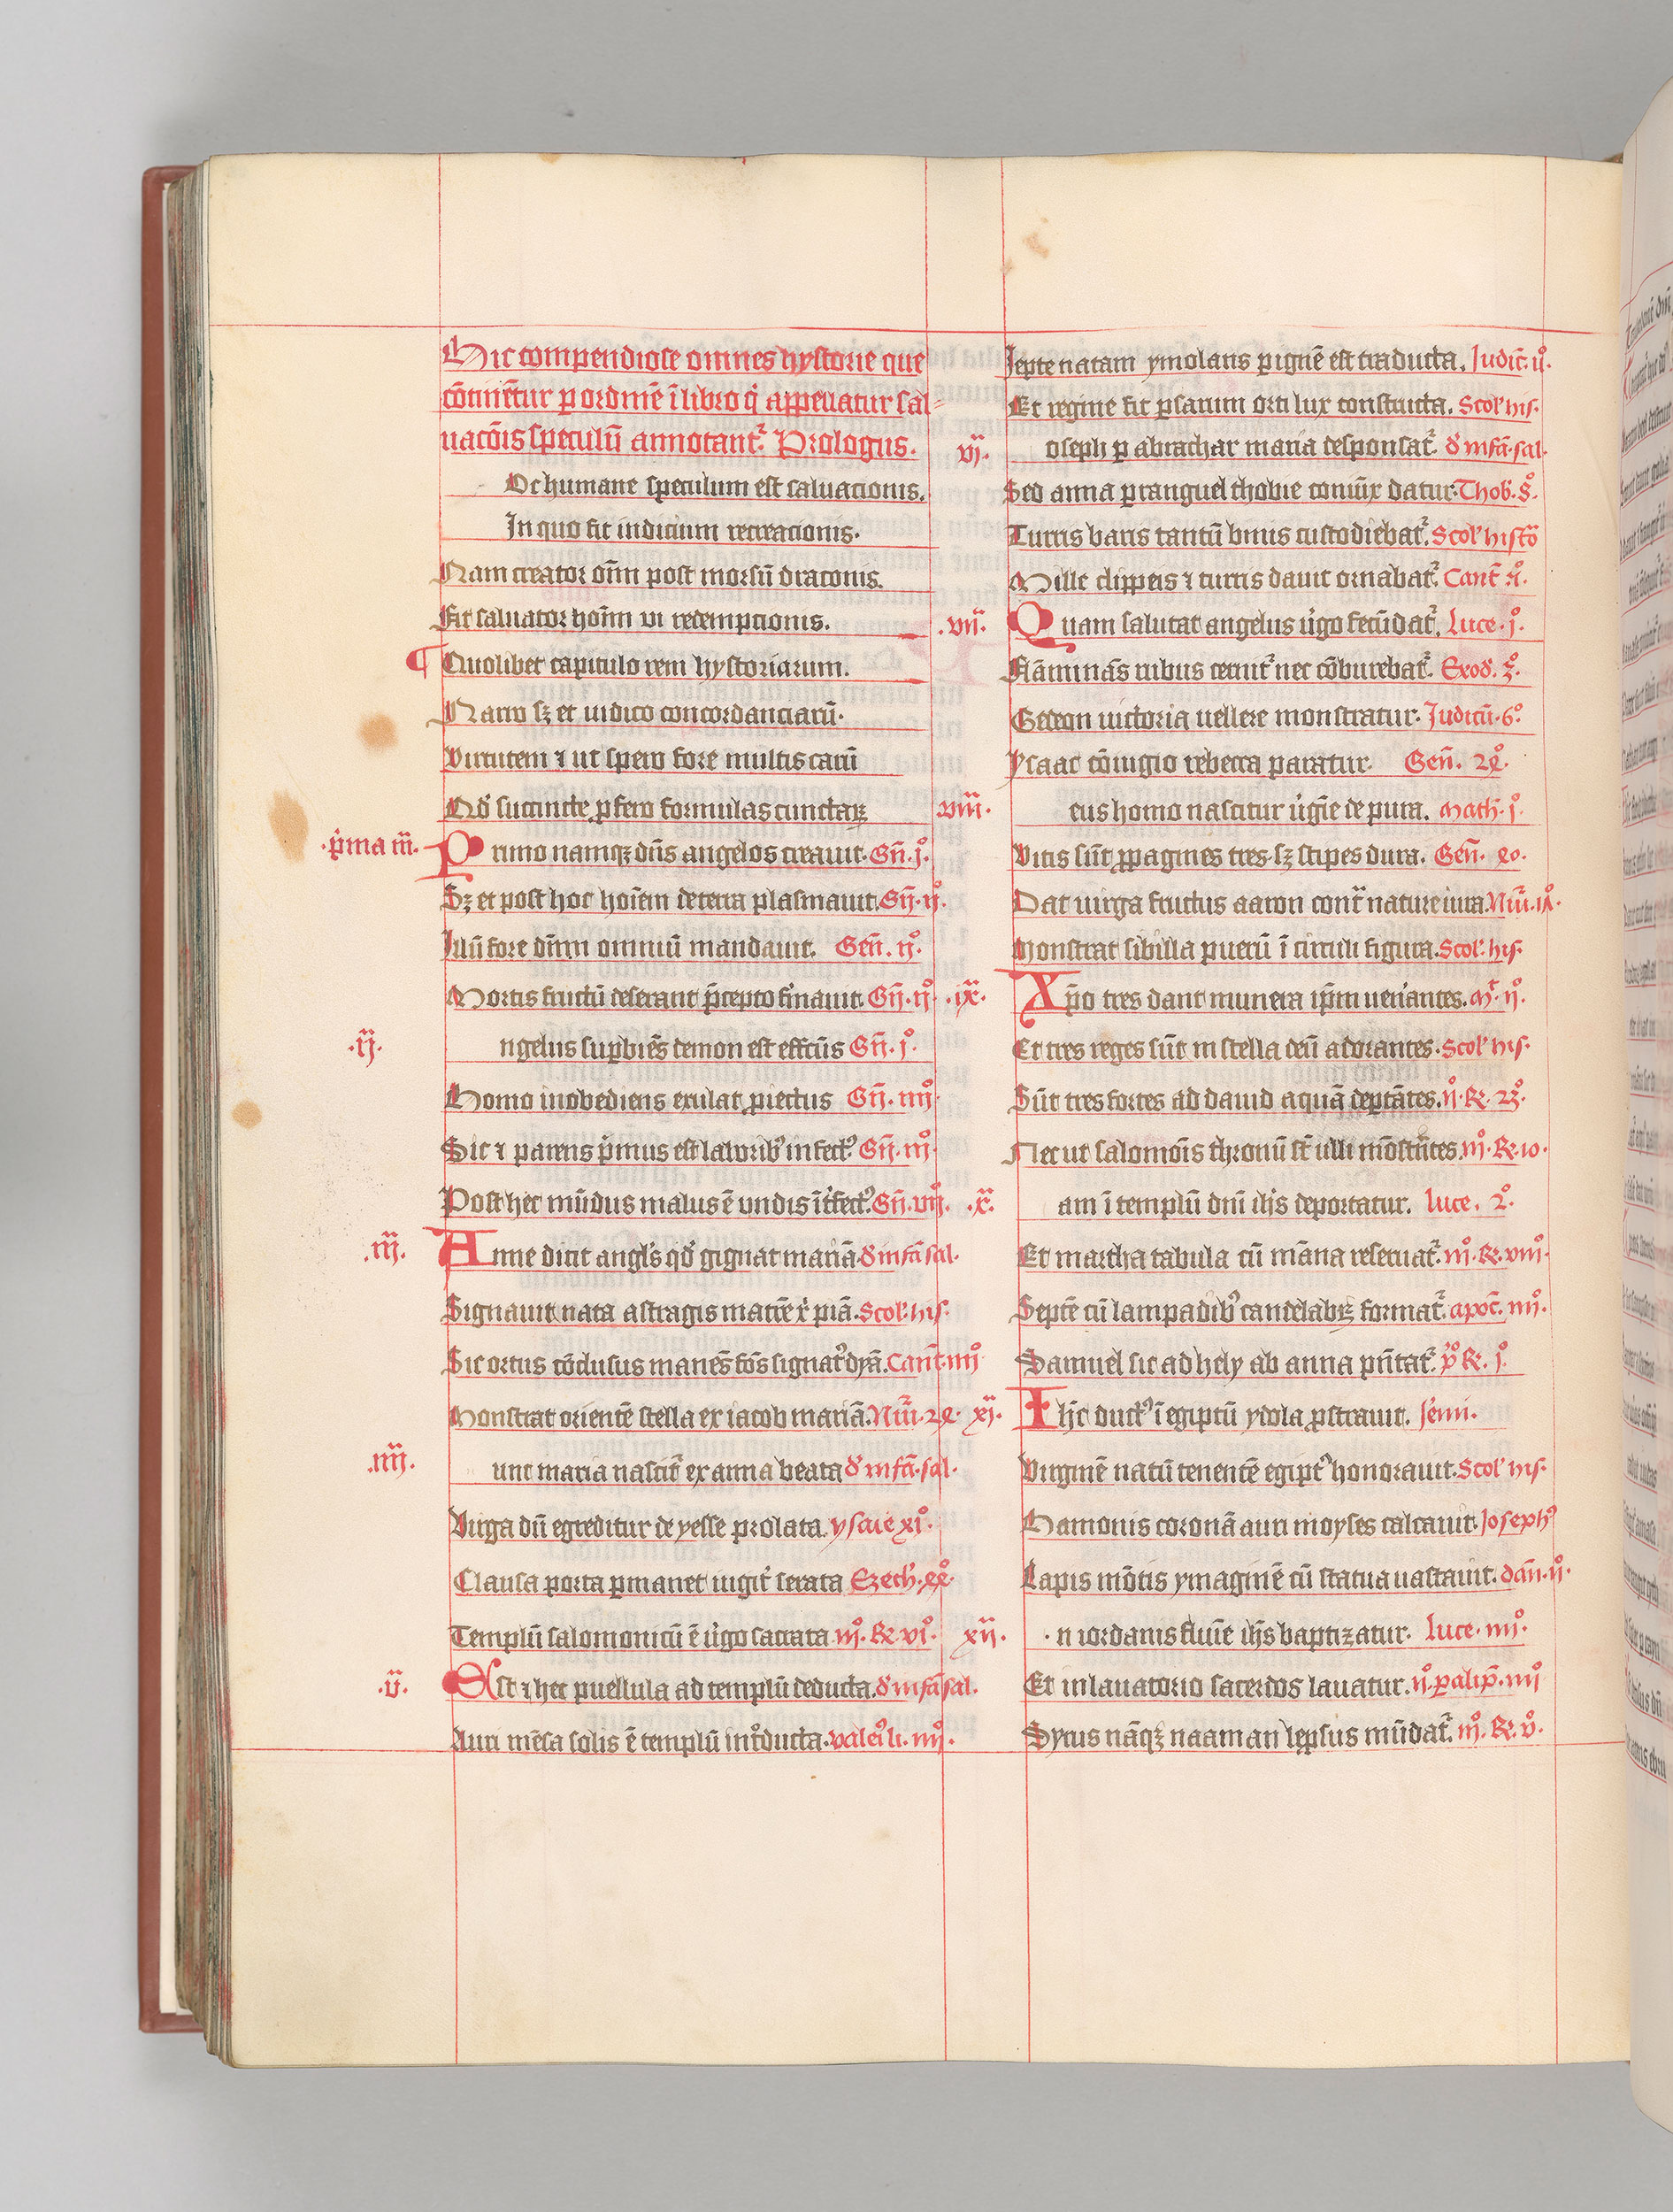 Hic compendiose omnes hystorie que
cōtinētur p ordinē ī libro q̇ appellatur sal-
uacōis speculū annotant᷑. Prologus.
Oc humane speculum est saluacionis.
In quo fit indicium recreacionis.
Nam creator oīm post morsū draconis.
Fit saluator hoīm ui redempcionis.
¶ Quolibet capitulo rem hystoriarum.
Narro sꝫ et uidico concordanciarū.
Virtutem ⁊ ut spero fore multis carū
succincte pfero formulas cunctaꝝ
.p̄ma .i. Primo namqꝫ dn̄s angelos creauit. Gn̄. j°.
Sꝫ et post hoc hoīem de terra plasmauit. Gn̄. ij°.
Illū fore dn̄m omniū mandauit. Gen̄. ij°.
Mortis fructū deserant p̄cepto firmauit. Gn̄. ij°.
.ij. ngelus supbiēs demon est effectus Gn̄. j°.
Homo inobediens exulat piectus Gn̄. iiij°.
Sic ⁊ parens p̄mus est laborib⁹ infect⁹ Gn̄. iij°.
Post hec mūdus malus ē undis īt̄fect⁹. Gn̄. vij°.
.iij. Anne dicit angl's qd' gignat mariā. d' infā sal.
Signauit nata astragis matrē pia. Scol'. his.
Sic ortus cōclusus manēs fōs signat⁹ dyā. Cant̄. iiij°
Monstrat orientē stella ex iacob mariā. Nūi. 2ꝭ.
.iiij. unc maria nascit᷑ ex anna beata d' infā. sal.
Virga dū egreditur de yesse prolata. ysaie xi°.
Clausa porta pmanet iugit᷑ serata Ezech.
Templū salomonicū ē v̇go sacrata iij°. Re. vi°.
.v. Ast ⁊ hec puellula ad templū deducta. d' infā sal.
Auri mēsa solis ē templū īt᷑ducta. valei' li. iiij°.
Jepte natam ymolans pignē est traducta. Judic̄. ij°.
Et regine fit psarum orti lux constructa. Scol' his.
vj. oseph p abiachar maria desponsat᷑. d' infā. sal.
Sed anna p ranguel thobie coniūx datur. Thob.
Turris baris tantū binis custodiebat᷑. Scol' histō
Mille clippeis ⁊ turris dauit ornabat᷑. Cant̄
.vij. Quam salutat angelus v̇go fecūdat᷑. Luce. j°.
Flāmināˢ rubus cernit᷑ nec cōburebat᷑. Exod. 3°.
Gedeon uictoria uellere monstratur. Judicū. 6°.
Ysaac cōiugio rebecca paratur. Gen̄. 2ꝭ°.
viij. eus homo nascitur v̇gīe de pura. Math. j°.
Vitis sūt ꝓpagines tres. sꝫ stipes dura. Gen̄.
Dat uirga fructus aaron cont᷑ nature iura. Nūi. ix°.
Monstrat sibilla puerū ī circuli figura. Scol'. his.
.ix. Xp̄o tres dant munera ip̄m uen'antes. Mt̄. ij°.
Et tres reges sūt in stella deū adorantes. Scol' his.
Sūt tres fortes ad dauid aquā deptātes. ij°. Re. 23°.
Nec ut salomōis thronū st̄ ulli mōstrātes. iij°. Re. 10.
.x. am ī templū dn̄i ih̄s deportatur. luce. 2°.
Et martha tabula cū māna reseruat᷑. iij°. Re. viij°.
Septē cū lampadib⁹ candelabꝝ format᷑. apoc̄. iiij°.
Samuel sic ad hely ab anna pn̄tat᷑. p° Re. j°.
xj. Ih̄c duct⁹ ī egiptū ydola pstrauit. Ie'mi.
Virginē natū tenentē egipt⁹ honorauit. Scol' his.
Hamonis coronā auri moyses calcauit. Joseph⁹
Lapis mōtis ymaginē cū statua uastauit. dān. ij°.
xij. n iordanis fluuīe ih̄s baptizatur. luce. iiij°.
Et in lauatorio sacerdos lauatur. ij°. palip̄. iiij°
Syrus nāqꝫ naaman lepsus mūdat᷑. iij°. Re. v°.